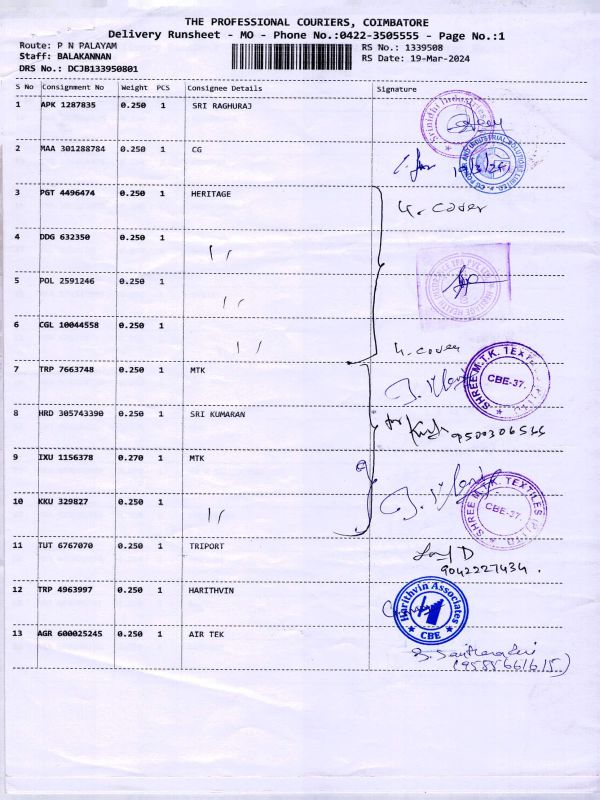 THE PROFESSIONAL COURIERS, COIMBATORE
Delivery Runsheet - MO - Phone No.:0422-3505555 - Page No.:1
Route: P N PALAYAM RS No.: 1339508
Staff: BALAKANNAN RS Date: 19-Mar-2024
DRS No.: DCJB133950801
S No Consignment No Weight PCS Consignee Details Signature
1 APK 1287835 0.250 1 SRI RAGHURAJ
2 MAA 301288784 0.250 1 CG
3 PGT 4496474 0.250 1 HERITAGE
4. cover
4 DDG 632350 0.250 1 ''
5 POL 2591246 0.250 1 ''
6 CGL 10044558 0.250 1 ''
4. cover
7 TRP 7663748 0.250 1 MTK
SHREE M.T.K. TEXTILES (P) LTD.
CBE-37.
8 HRD 305743390 0.250 1 SRI KUMARAN
9500306545
9 IXU 1156378 0.270 1 MTK
10 KKU 329827 0.250 1 ''
SHREE M.T.K. TEXTILES (P) LTD.
CBE-37
11 TUT 6767070 0.250 1 TRIPORT
9042227434.
12 TRP 4963997 0.250 1 HARITHVIN
Harithvin Associates
CBE
13 AGR 600025245 0.250 1 AIR TEK